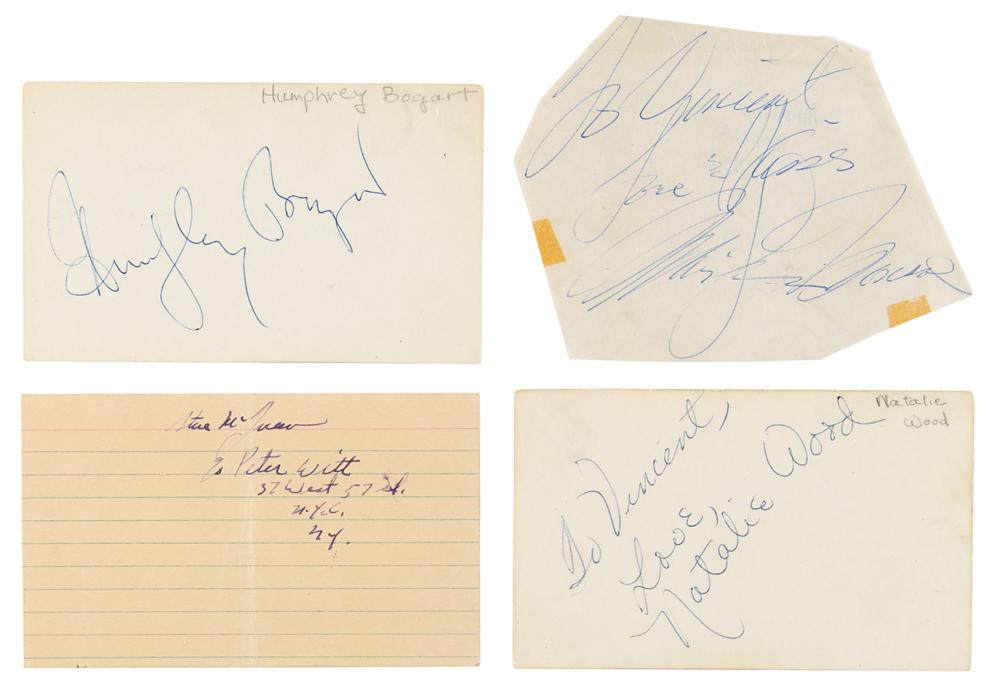 Humphrey Bogart
Humphrey Bogart
To Vincent
Love & Kisses
Marilyn Monroe
Steve McQueen
% Peter Witt
37 West 57 St.
N.Y.C.
N.Y.
Natalie
Wood
To Vincent,
Love,
Natalie Wood